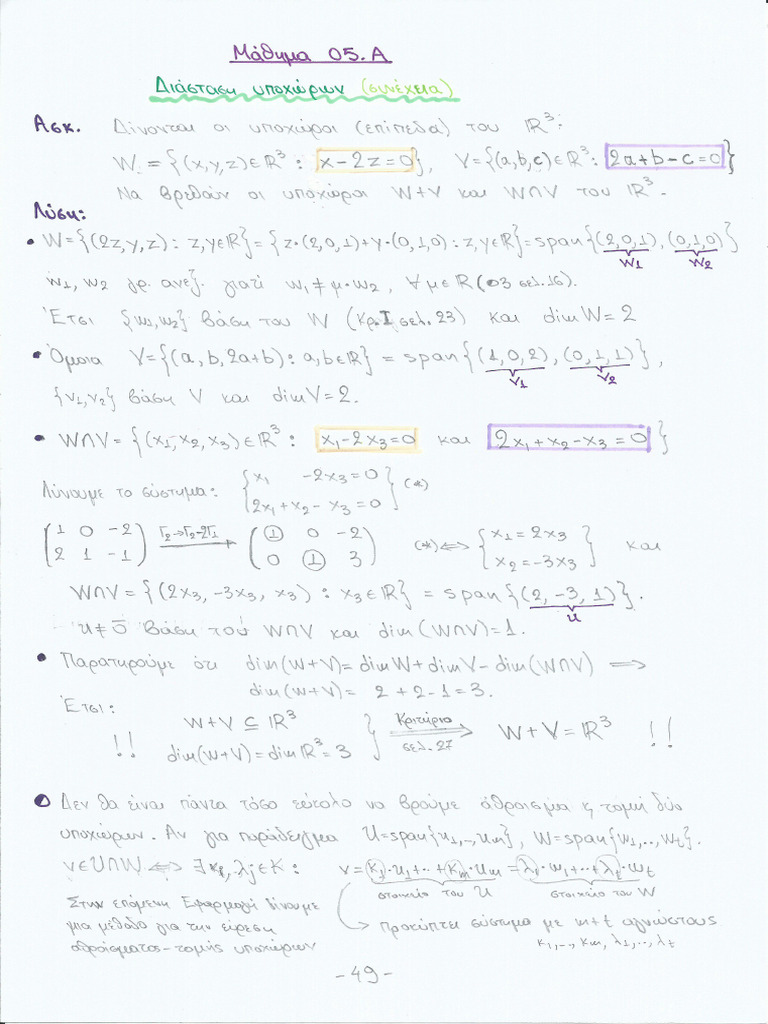 Μάθημα 05.Α
Διάσταση υποχώρων (συνέχεια)
Ασκ. Δίνονται οι υποχώροι (επίπεδα) του ℝ³:
W = {(x,y,z)∈ℝ³ : x-2z=0}, V={(a,b,c)∈ℝ³: 2a+b-c=0}
Να βρεθούν οι υποχώροι W+V και W∩V του ℝ³.
Λύση:
• W={(2z,y,z): z,y∈ℝ}={z·(2,0,1)+y·(0,1,0): z,y∈ℝ}=span{(2,0,1), (0,1,0)}
w₁ w₂
w₁, w₂ γρ. ανεξ. γιατί w₁≠μ·w₂, ∀μ∈ℝ (03 σελ.16).
Έτσι {w₁,w₂} βάση του W (Κρ.Ι σελ.23) και dimW=2
• Όμοια V={(a,b,2a+b): a,b∈ℝ} = span{(1,0,2), (0,1,1)},
v₁ v₂
{v₁,v₂} βάση V και dimV=2.
• W∩V={(x₁,x₂,x₃)∈ℝ³ : x₁-2x₃=0 και 2x₁+x₂-x₃=0}
Λύνουμε το σύστημα: {x₁ -2x₃=0
2x₁+x₂-x₃=0} (*)
(1 0 -2
2 1 -1) Γ₂→Γ₂-2Γ₁ (1 0 -2
0 1 3) (*)⟺ {x₁=2x₃
x₂=-3x₃} και
W∩V={(2x₃,-3x₃, x₃): x₃∈ℝ} = span{(2,-3,1)}.
u
u≠0̄ βάση του W∩V και dim(W∩V)=1.
• Παρατηρούμε ότι dim(W+V)=dimW+dimV-dim(W∩V) ⟹
dim(W+V)= 2+2-1=3.
Έτσι:
!! W+V ⊆ ℝ³
dim(W+V)=dimℝ³=3 } Κριτήριο σελ.27 ⟹ W+V=ℝ³ !!
• Δεν θα είναι πάντα τόσο εύκολο να βρούμε άθροισμα ή τομή δύο
υποχώρων. Αν για παράδειγμα U=span{u₁,..,uₘ}, W=span{w₁,..,wₜ}.
v∈U∩W ⟺ ∃κᵢ,λⱼ∈K: v=κ₁·u₁+..+κₘ·uₘ=λ₁·w₁+..+λₜ·wₜ
στοιχείο του U στοιχείο του W
Στην επόμενη Εφαρμογή δίνουμε
μια μέθοδο για την εύρεση
αθροίσματος-τομής υποχώρων
Προκύπτει σύστημα με m+t αγνώστους
κ₁,..,κₘ, λ₁,..,λₜ
-49-